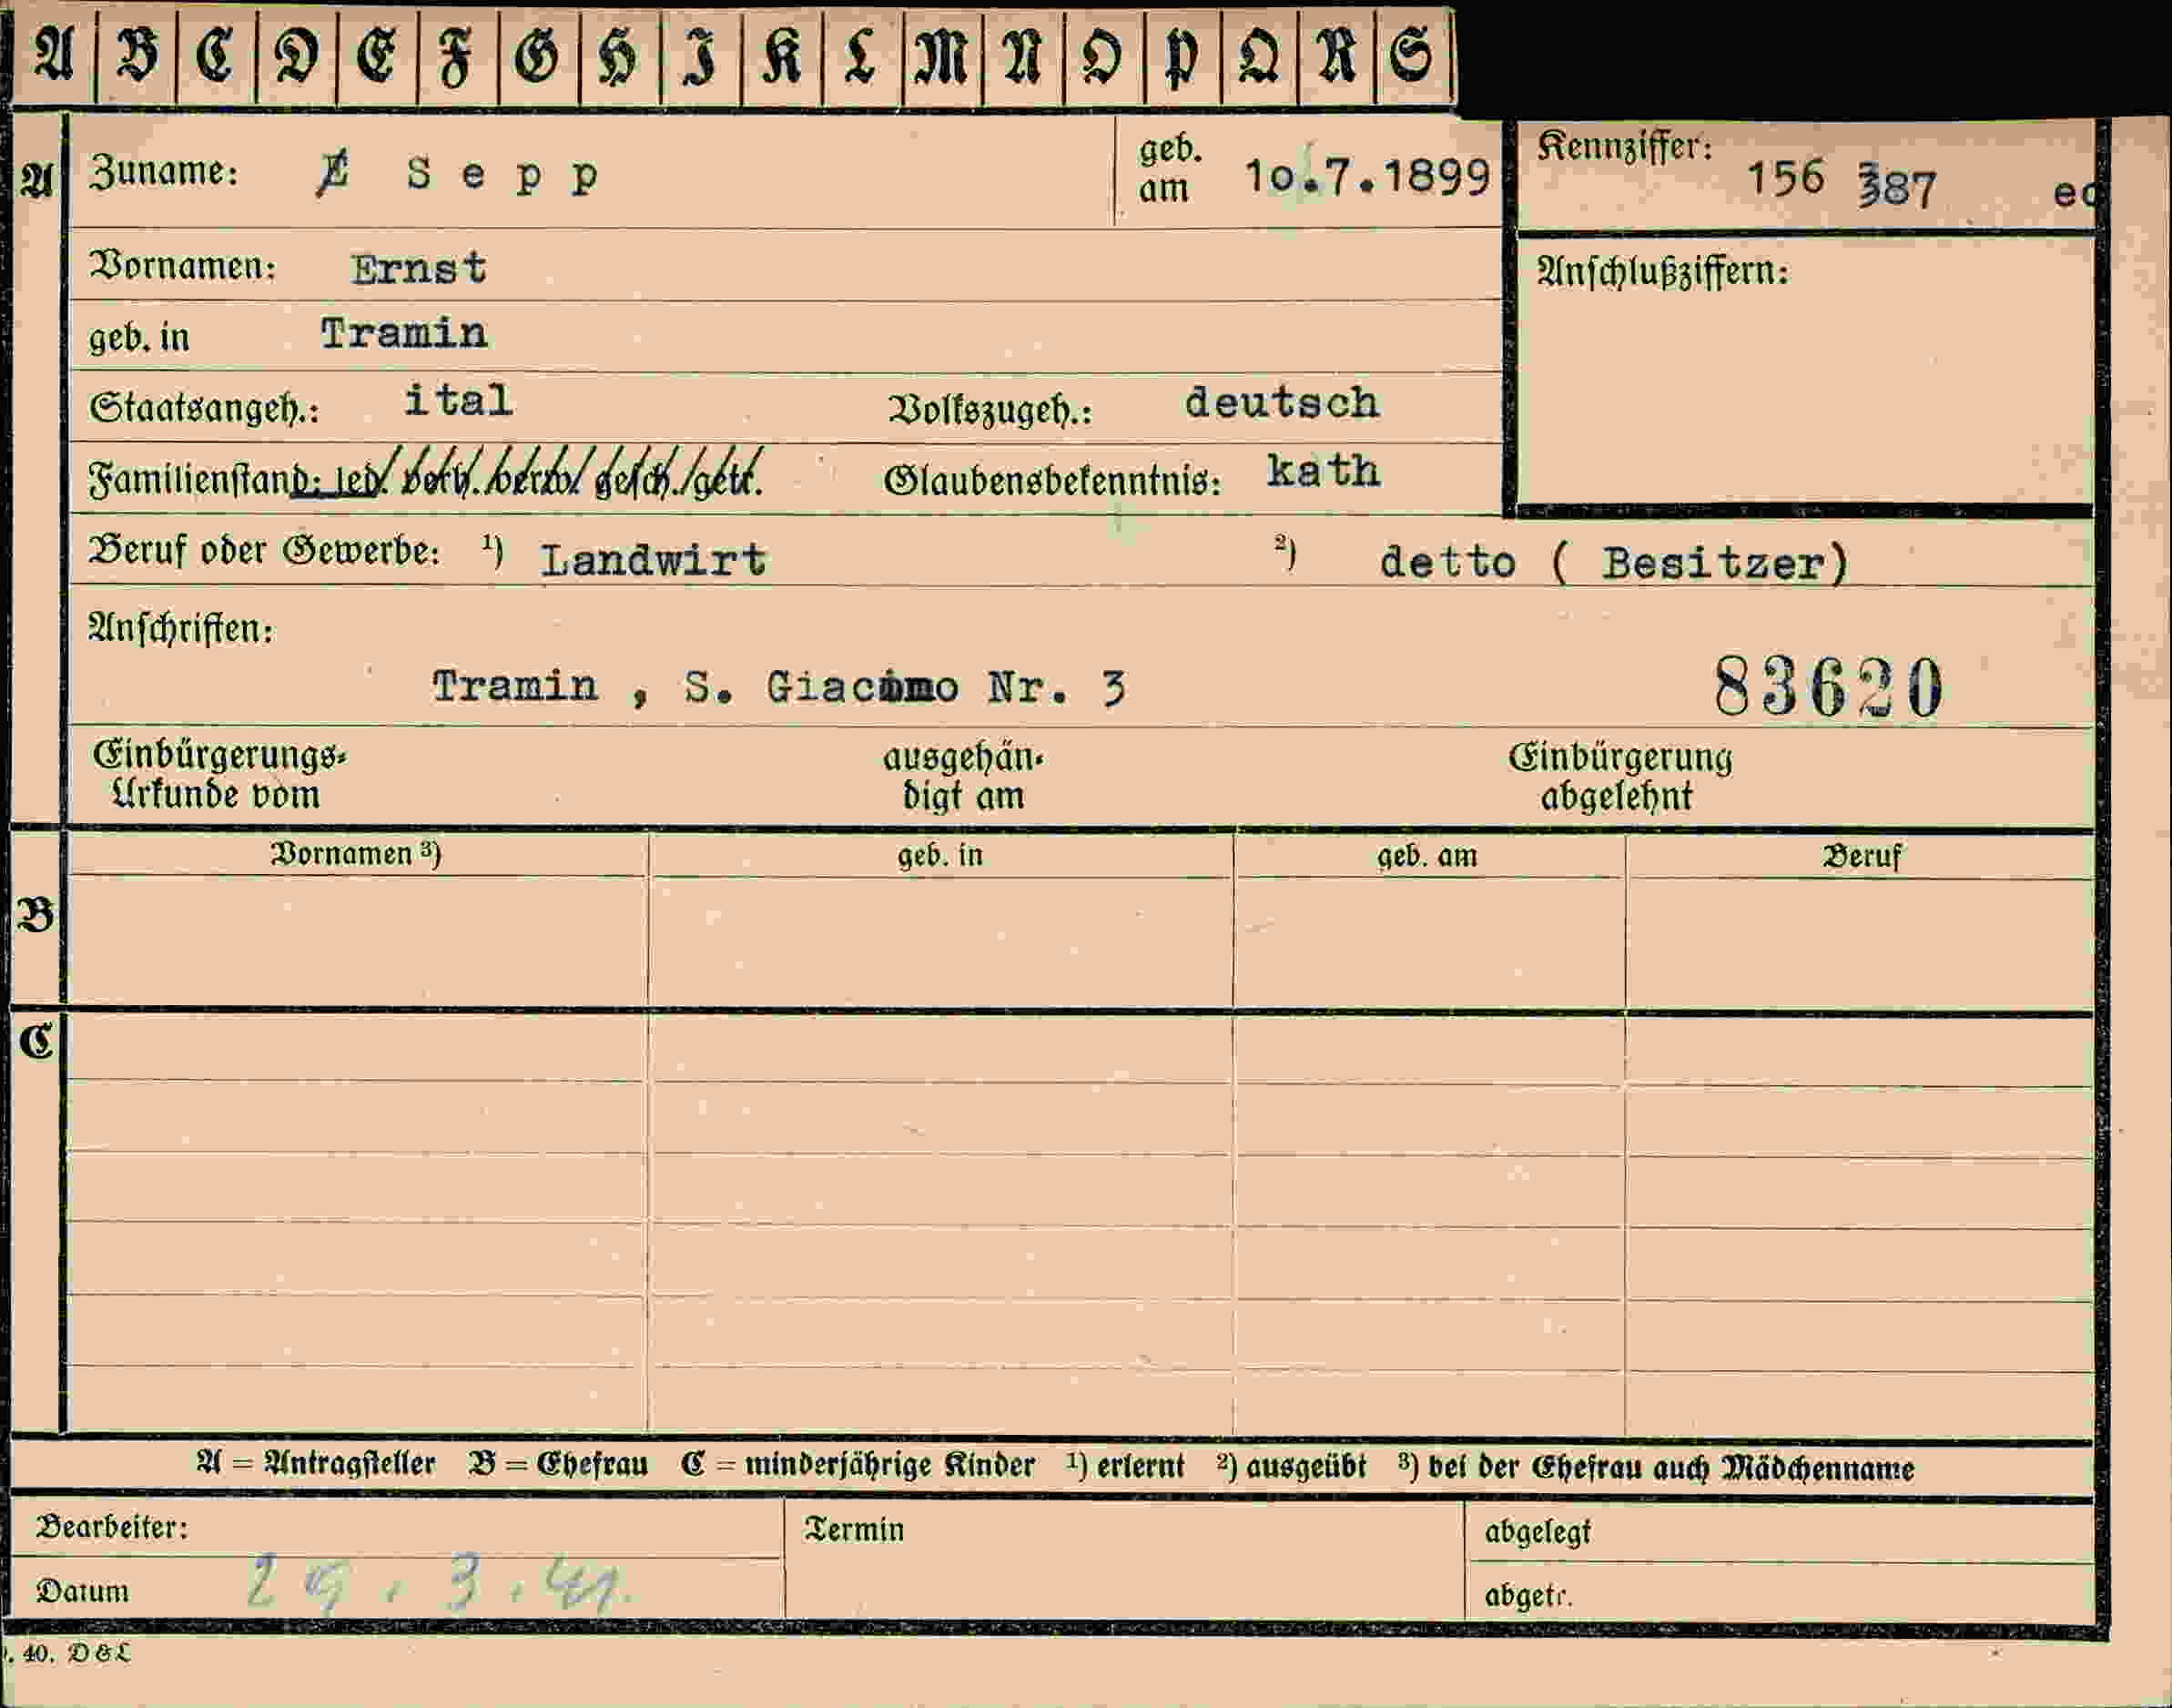 A B C D E F G H I K L M N O P Q R S
A Zuname: S e p p geb. am 10.7.1899 Kennziffer: 156 387 ed
Vornamen: Ernst Anschlußziffern:
geb. in Tramin
Staatsangeh.: ital Volkszugeh.: deutsch
Familienstand: led. verh. verw. gesch. getr. Glaubensbekenntnis: kath
Beruf oder Gewerbe: ¹) Landwirt ²) detto ( Besitzer)
Anschriften:
Tramin , S. Giacomo Nr. 3 83620
Einbürgerungs- ausgehän- Einbürgerung
Urkunde vom digt am abgelehnt
Vornamen ³) geb. in geb. am Beruf
B
C
A = Antragsteller B = Ehefrau C = minderjährige Kinder ¹) erlernt ²) ausgeübt ³) bei der Ehefrau auch Mädchenname
Bearbeiter: Termin abgelegt
Datum 29.3.41. abgetr.
. 40. D&L